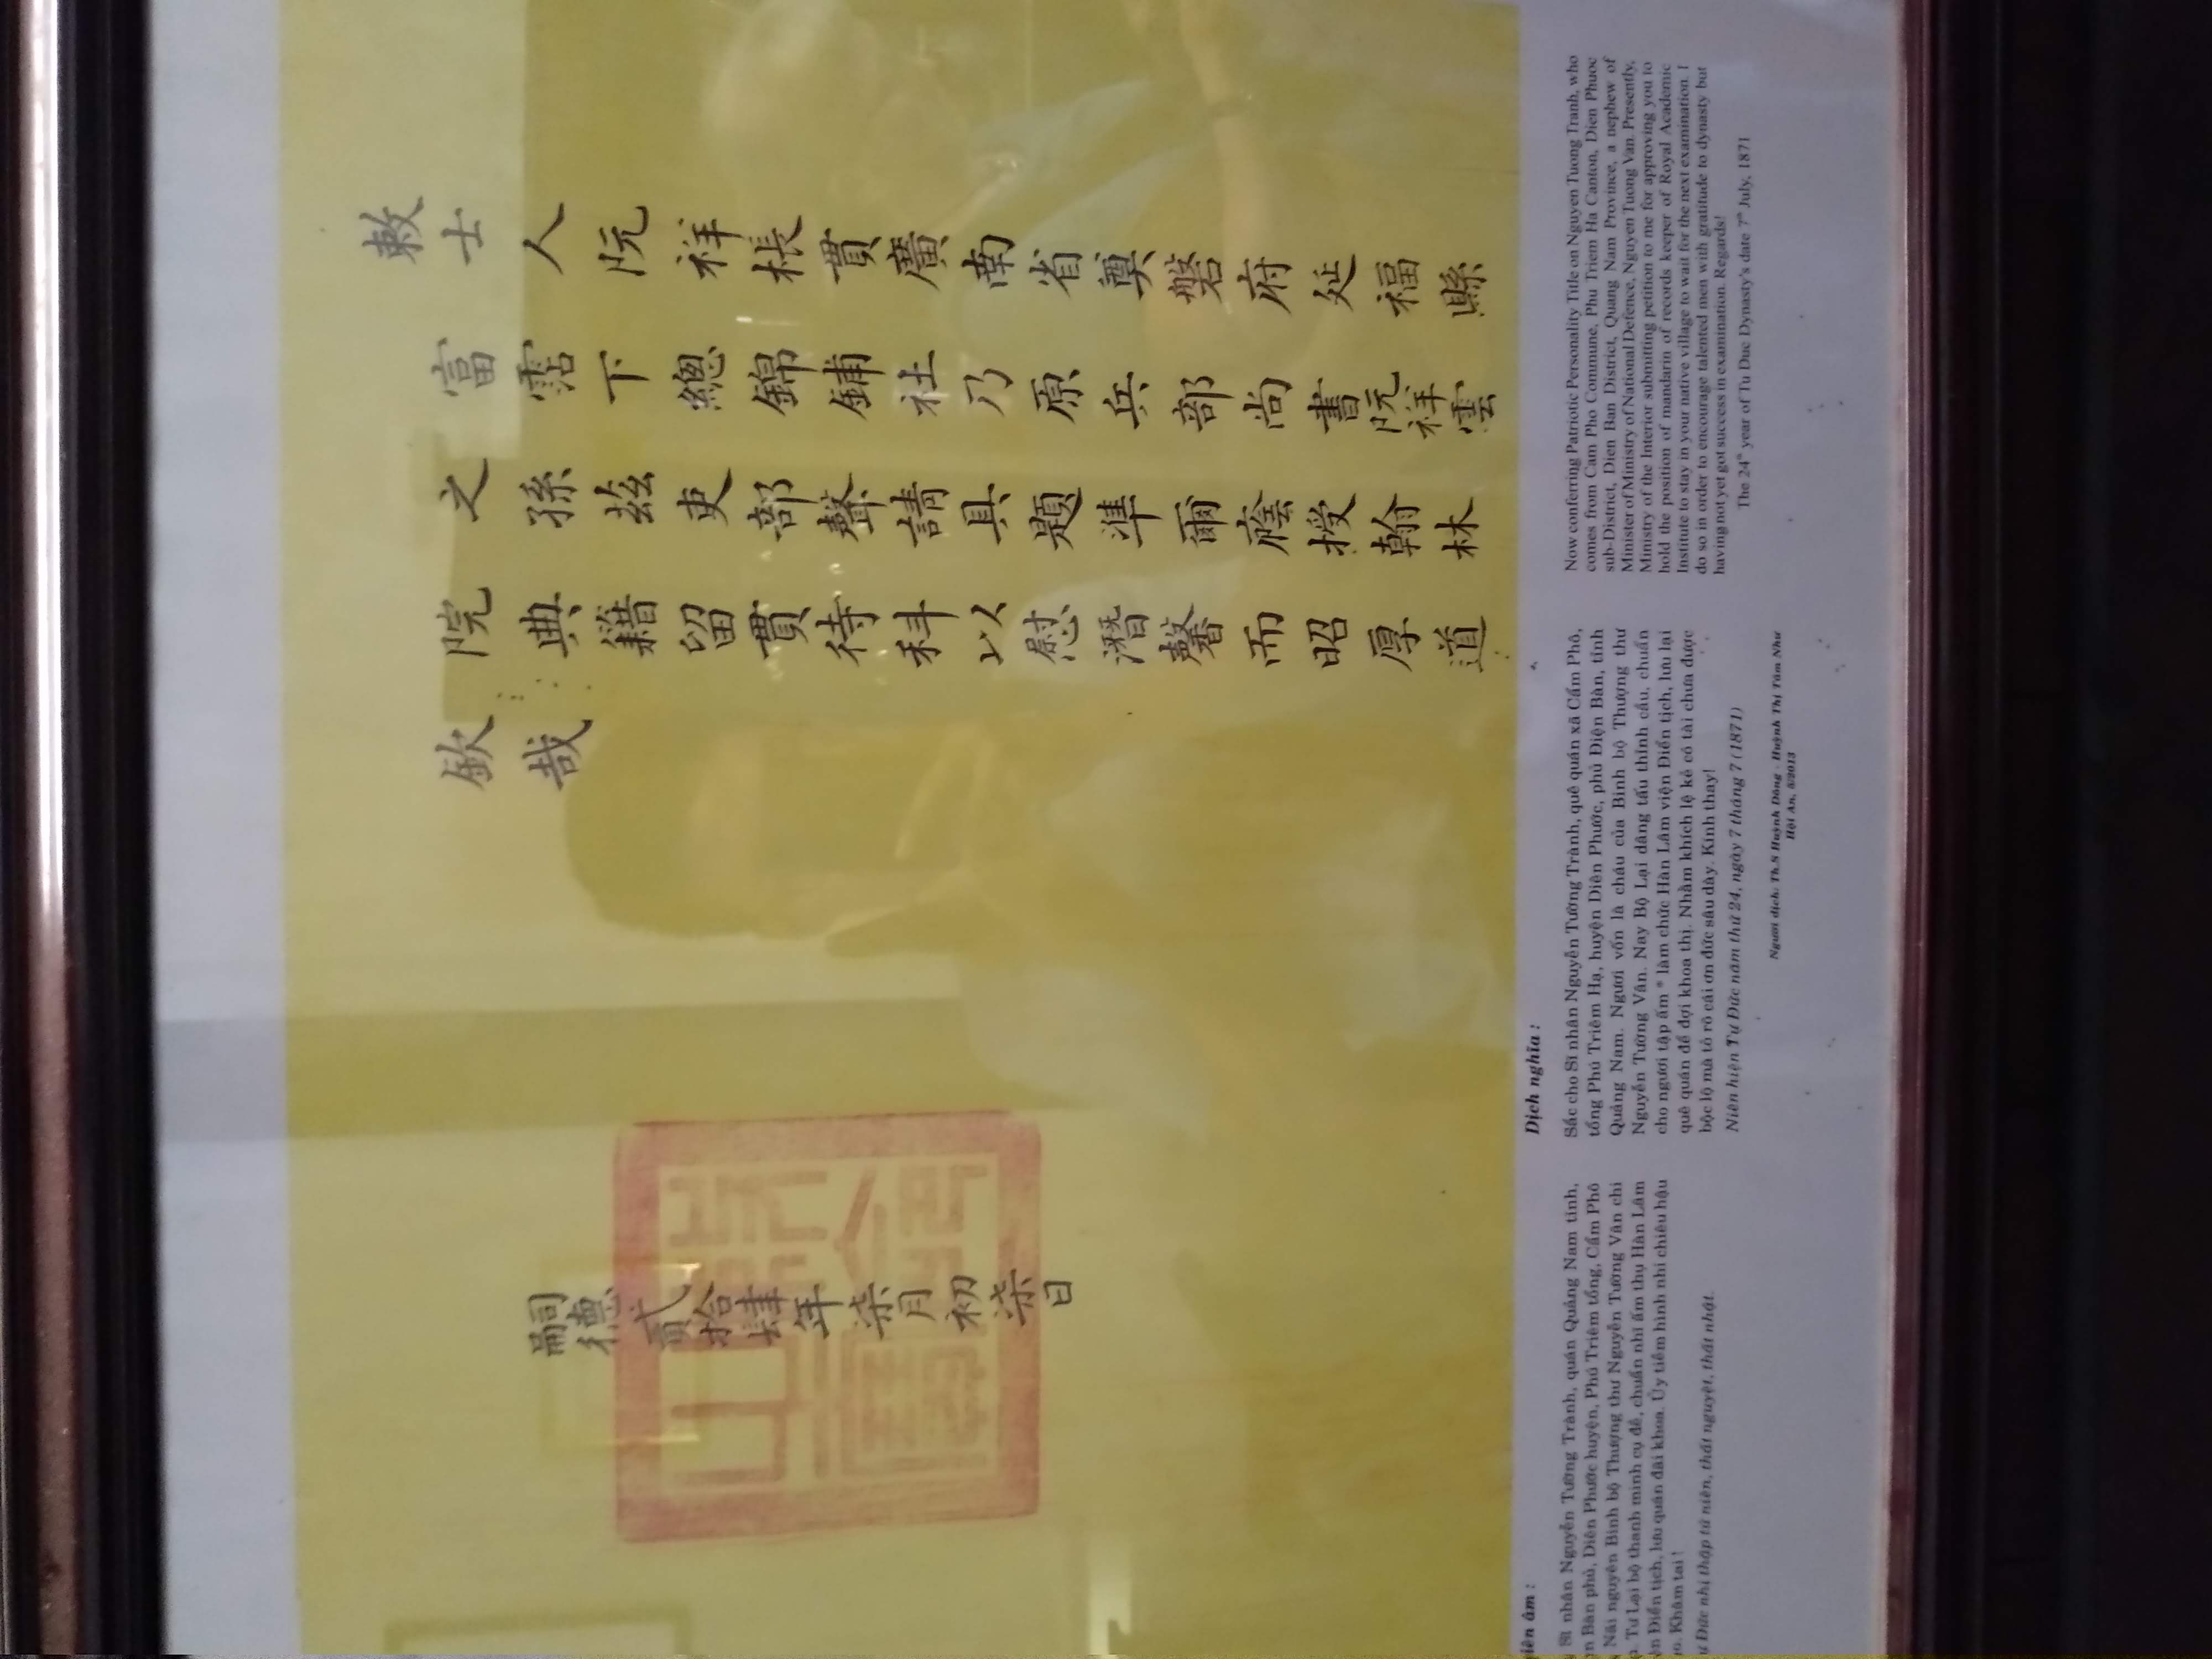 敕士人阮祥棖貫廣南省奠磐府延福縣
富霑下總錦鋪社乃原兵部尚書阮祥雲
之孫茲吏部聲請具題準爾廕授翰林
院典籍留貫待科以慰潛馨而昭厚道
欽哉
嗣德貳拾肆年柒月初柒日
敕命之寶
iên âm :
Sĩ nhân Nguyễn Tường Trành, quán Quảng Nam tỉnh,
n Bàn phủ, Diên Phước huyện, Phú Triêm tổng, Cẩm Phô
Nãi nguyên Binh bộ Thượng thư Nguyễn Tường Vân chi
Tư Lại bộ thanh minh cụ đề, chuẩn nhĩ ấm thụ Hàn Lâm
n Điển tịch, lưu quán đãi khoa. Ủy tiềm hinh nhi chiêu hậu
Khâm tai !
Đức nhị thập tứ niên, thất nguyệt, thất nhật.
Dịch nghĩa :
Sắc cho Sĩ nhân Nguyễn Tường Trành, quê quán xã Cẩm Phô,
tổng Phú Triêm Hạ, huyện Diên Phước, phủ Điện Bàn, tỉnh
Quảng Nam. Ngươi vốn là cháu của Binh bộ Thượng thư
Nguyễn Tường Vân. Nay Bộ Lại dâng tấu thỉnh cầu, chuẩn
cho ngươi tập ấm * làm chức Hàn Lâm viện Điển tịch, lưu lại
quê quán để đợi khoa thi. Nhằm khích lệ kẻ có tài chưa được
bộc lộ mà tỏ rõ cái ơn đức sâu dày. Kính thay!
Niên hiện Tự Đức năm thứ 24, ngày 7 tháng 7 (1871)
Người dịch: Th.S Huỳnh Dõng - Huỳnh Thị Tâm Như
Hội An, 5/2013
Now conferring Patriotic Personality Title on Nguyen Tuong Tranh, who
comes from Cam Pho Commune, Phu Triem Ha Canton, Dien Phuoc
sub-District, Dien Ban District, Quang Nam Province, a nephew of
Minister of Ministry of National Defence, Nguyen Tuong Van. Presently,
Ministry of the Interior submitting petition to me for approving you to
hold the position of mandarin of records keeper of Royal Academic
Institute to stay in your native village to wait for the next examination. I
do so in order to encourage talented men with gratitude to dynasty but
having not yet got success in examination. Regards!
The 24th year of Tu Duc Dynasty's date 7th July, 1871